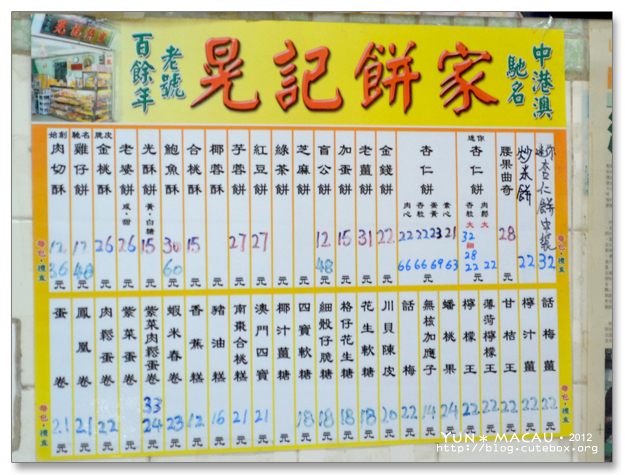 晃記餅家
百餘年
老號
晃記餅家
馳名
中港澳
始創 肉切酥 12 36 元
馳名 雞仔餅 12 48 元
金桃酥 26 元
老婆餅 咸・甜 26 元
光酥餅 黃・白糖 15 元
鮑魚酥 30 60 元
合桃酥 15 元
椰蓉酥 元
芋蓉餅 27 元
紅豆餅 27 元
綠茶餅 元
芝麻餅 元
盲公餅 12 48 元
加蛋餅 15 元
老薑餅 31 元
金錢餅 22 元
杏仁餅
肉心 22 66
杏粒 22 66
蛋黃 23 69
素心 21 63
元
迷你 杏仁餅
杏粒 大 32 細 28 22
肉鬆 大 22
元
腰果曲奇 28 元
炒米餅 22 元
迷你杏仁餅中裝 32 元
每包・禮盒
每包・禮盒
蛋卷 21 元
鳳凰卷 21 元
肉鬆蛋卷 22 元
紫菜蛋卷 元
紫菜肉鬆蛋卷 33 24 元
蝦米春卷 23 元
香蕉糕 12 元
豬油糕 16 元
南棗合桃糕 21 元
澳門四寶 21 元
椰汁薑糖 元
四寶軟糖 18 元
細殼仔脆糖 18 元
格仔花生糖 18 元
花生軟糖 18 元
川貝陳皮 20 元
話梅 22 元
無核加應子 14 元
蟠桃果 24 元
檸檬王 22 元
薄荷檸檬王 22 元
甘桔王 22 元
檸汁薑 22 元
話梅薑 22 元
每包・禮盒
每包・禮盒
YUN＊MACAU・2012
http://blog.cutebox.org